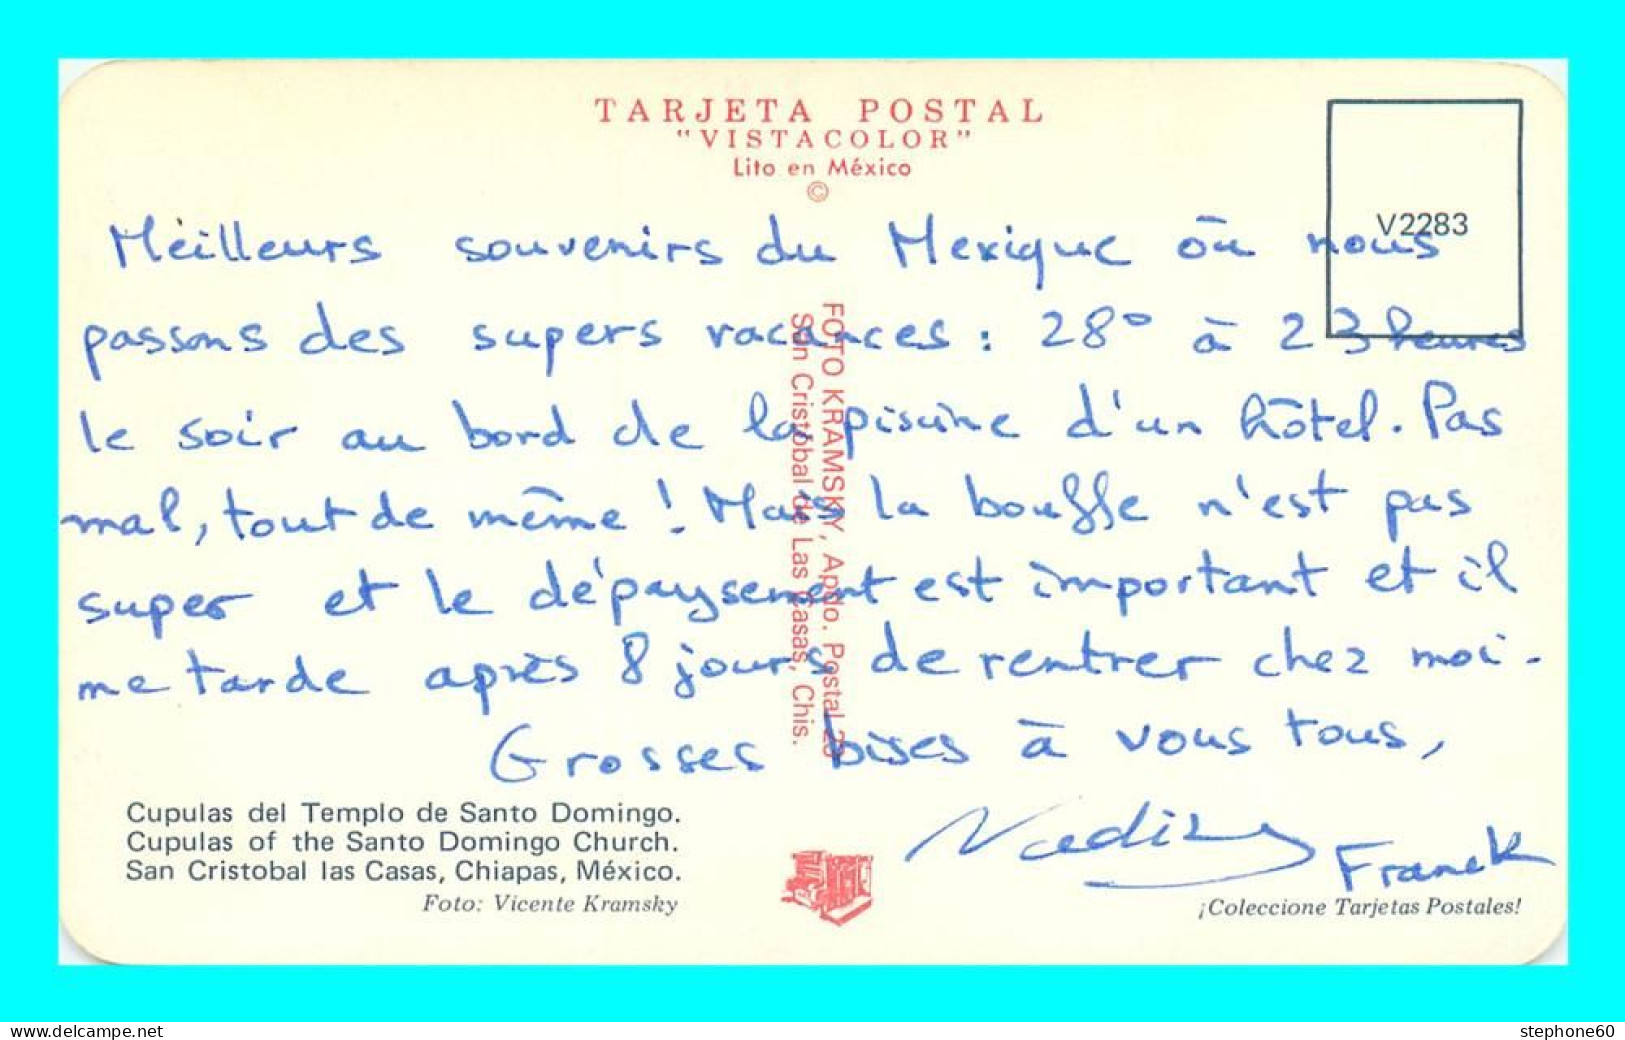 TARJETA POSTAL
"VISTACOLOR"
Lito en México
©
V2283
Meilleurs souvenirs du Mexique où nous
passons des supers vacances : 28° à 23 heures
le soir au bord de la piscine d'un hôtel. Pas
mal, tout de même ! Mais la bouffe n'est pas
super et le dépaysement est important et il
me tarde après 8 jours de rentrer chez moi.
Grosses bises à vous tous,
Nadine
Franck
FOTO KRAMSKY, Apdo. Postal 23
San Cristóbal de Las Casas, Chis.
Cupulas del Templo de Santo Domingo.
Cupulas of the Santo Domingo Church.
San Cristobal las Casas, Chiapas, México.
Foto: Vicente Kramsky
¡Coleccione Tarjetas Postales!
www.delcampe.net
stephone60